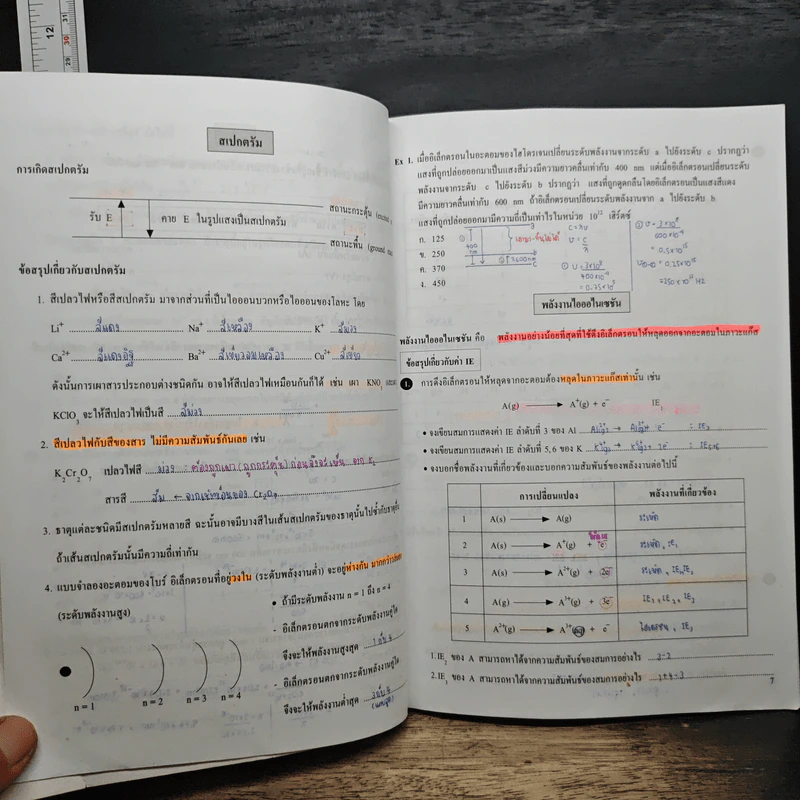 สเปกตรัม
การเกิดสเปกตรัม
สถานะกระตุ้น
รับ E
คาย E ในรูปแสงเป็นสเปกตรัม
สถานะพื้น (ground
ข้อสรุปเกี่ยวกับสเปกตรัม
1. สีเปลวไฟหรือสีสเปกตรัม มาจากส่วนที่เป็นไอออนบวกหรือไอออนของโลหะ โดย
Li⁺ สีแดง Na⁺ สีเหลือง K⁺ สีม่วง
Ca²⁺ สีแดงอิฐ Ba²⁺ สีเขียวอมเหลือง Cu²⁺ สีเขียว
ดังนั้นการเผาสารประกอบต่างชนิดกัน อาจให้สีเปลวไฟเหมือนกันก็ได้ เช่น เผา KNO₃
KClO₃ จะให้สีเปลวไฟเป็นสี สีม่วง
2. สีเปลวไฟกับสีของสาร ไม่มีความสัมพันธ์กันเลย เช่น
K₂Cr₂O₇ เปลวไฟสี ม่วง : ต้องถูกเผา (ถูกกระตุ้น) ก่อนถึงจะเห็น จาก K
สารสี ส้ม ←
3. ธาตุแต่ละชนิดมีสเปกตรัมหลายสี ฉะนั้นอาจมีบางสีในเส้นสเปกตรัมของธาตุนั้นไปซ้ำกับธาตุอื่น
ถ้าเส้นสเปกตรัมนั้นมีความถี่เท่ากัน
4. แบบจำลองอะตอมของโบร์ อิเล็กตรอนที่อยู่วงใน (ระดับพลังงานต่ำ) จะอยู่ห่างกัน มากกว่า
(ระดับพลังงานสูง)
• ถ้ามีระดับพลังงาน n = 1 ถึง n = 4
- อิเล็กตรอนตกจากระดับพลังงานคู่ใด
จึงจะให้พลังงานสูงสุด
- อิเล็กตรอนตกจากระดับพลังงานคู่ใด
จึงจะให้พลังงานต่ำสุด
n = 1 n = 2 n = 3 n = 4
Ex 1. เมื่ออิเล็กตรอนในอะตอมของไฮโดรเจนเปลี่ยนระดับพลังงานจากระดับ a ไปยังระดับ c ปรากฏว่า
แสงที่ถูกปล่อยออกมาเป็นแสงสีม่วงมีความยาวคลื่นเท่ากับ 400 nm แต่เมื่ออิเล็กตรอนเปลี่ยนระดับ
พลังงานจากระดับ c ไปยังระดับ b ปรากฏว่า แสงที่ถูกดูดกลืนโดยอิเล็กตรอนเป็นแสงสีแดง
มีความยาวคลื่นเท่ากับ 600 nm ถ้าอิเล็กตรอนเปลี่ยนระดับพลังงานจาก a ไปยังระดับ b
แสงที่ถูกปล่อยออกมามีความถี่เท่าไรในหน่วย 10¹² เฮิร์ตซ์
ก. 125
ข. 250
ค. 370
ง. 450
พลังงานไอออไนเซชัน
พลังงานไอออไนเซชัน คือ พลังงานอย่างน้อยที่สุดที่ใช้ดึงอิเล็กตรอนให้หลุดออกจากอะตอมในภาวะแก๊ส
ข้อสรุปเกี่ยวกับค่า IE
1. การดึงอิเล็กตรอนให้หลุดจากอะตอมต้องหลุดในภาวะแก๊สเท่านั้น เช่น
A(g) → A⁺(g) + e⁻ IE₁
• จงเขียนสมการแสดงค่า IE ลำดับที่ 3 ของ Al
• จงเขียนสมการแสดงค่า IE ลำดับที่ 5,6 ของ K
• จงบอกชื่อพลังงานที่เกี่ยวข้องและบอกความสัมพันธ์ของพลังงานต่อไปนี้
การเปลี่ยนแปลง พลังงานที่เกี่ยวข้อง
1 A(s) → A(g) ระเหิด
2 A(s) → A⁺(g) + e⁻ ระเหิด, IE₁
3 A(s) → A²⁺(g) + 2e⁻ ระเหิด, IE₁, IE₂
4 A(g) → A³⁺(g) + 3e⁻ IE₁, IE₂, IE₃
5 A²⁺(g) → A³⁺(aq) + e⁻
1. IE₂ ของ A สามารถหาได้จากความสัมพันธ์ของสมการอย่างไร 3-2
2. IE₃ ของ A สามารถหาได้จากความสัมพันธ์ของสมการอย่างไร 1+4-3
7